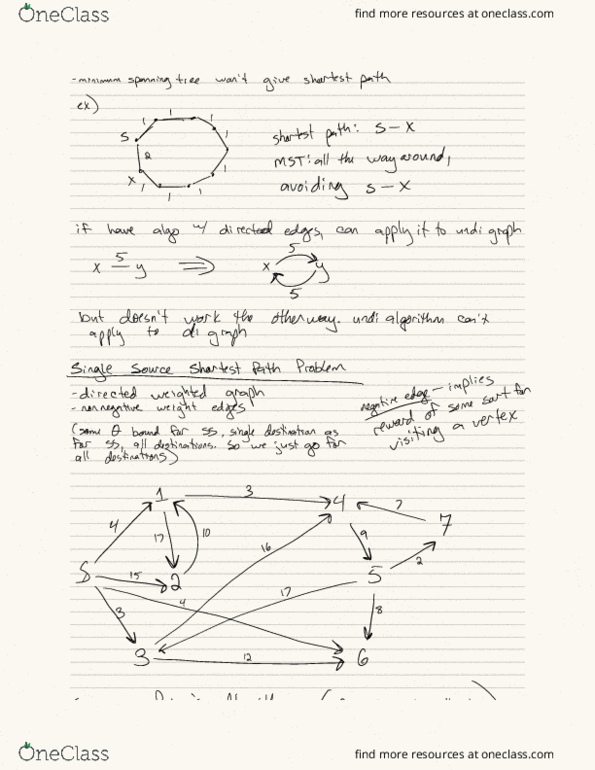 OneClass
find more resources at oneclass.com
- minimum spanning tree won't give shortest path
ex)
1 1 1 1 1 1 1
S
2
X
shortest path: S - X
MST: all the way around,
avoiding S - X
if have algo w/ directed edges, can apply it to undi graph
x 5 y ⇒ x 5 y 5
but doesn't work the other way. undi algorithm can't
apply to di graph
Single Source Shortest Path Problem
- directed weighted graph
- nonnegative weight edges
negative edge - implies
reward of some sort for
visiting a vertex
(same θ bound for SS, single destination as
for SS, all destinations. So we just go for
all destinations)
1 3 4 7
7
4 17 10 16 9
S 15 2 17 5 2
3 4 8
3 12 6
OneClass
find more resources at oneclass.com